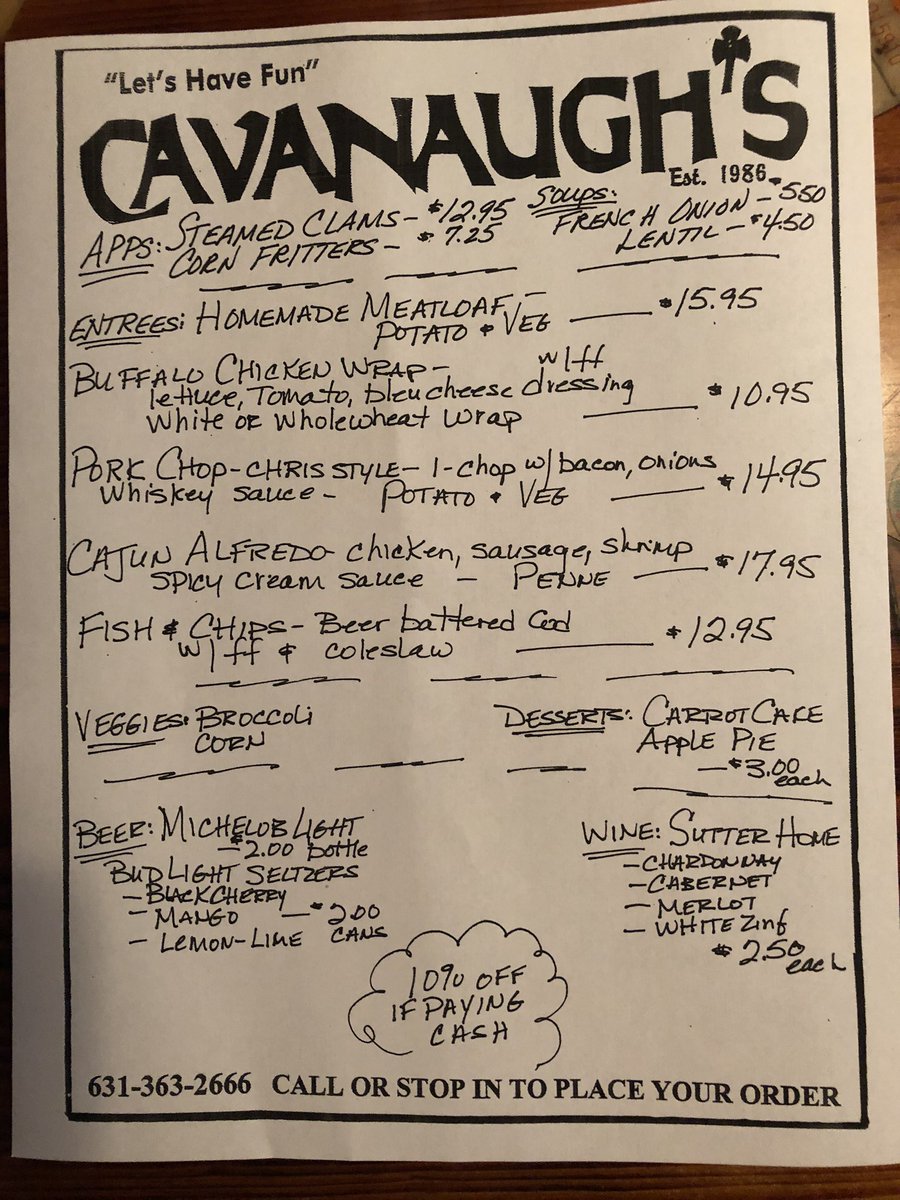 "Let's Have Fun"
CAVANAUGH'S
Est. 1986
APPS: STEAMED CLAMS - $12.95
CORN FRITTERS - $7.25
SOUPS:
FRENCH ONION - $5.50
LENTIL - $4.50
ENTREES: HOMEMADE MEATLOAF -
POTATO & VEG $15.95
BUFFALO CHICKEN WRAP - w/ff
lettuce, Tomato, bleu cheese dressing
white or wholewheat wrap $10.95
PORK CHOP - CHRIS STYLE - 1-chop w/bacon, onions
whiskey sauce - POTATO & VEG $14.95
CAJUN ALFREDO - chicken, sausage, shrimp
SPICY cream sauce - PENNE $17.95
FISH & CHIPS - Beer battered Cod
w/ff & coleslaw $12.95
VEGGIES: BROCCOLI
CORN
DESSERTS: CARROT CAKE
APPLE PIE
- $3.00
each
BEER: MICHELOB LIGHT
- $2.00 bottle
BUD LIGHT SELTZERS
- BLACK CHERRY
- MANGO - $2.00
- LEMON-LIME CANS
WINE: SUTTER HOME
- CHARDONNAY
- CABERNET
- MERLOT
- WHITE Zinf
$2.50
each
10% OFF
IF PAYING
CASH
631-363-2666 CALL OR STOP IN TO PLACE YOUR ORDER